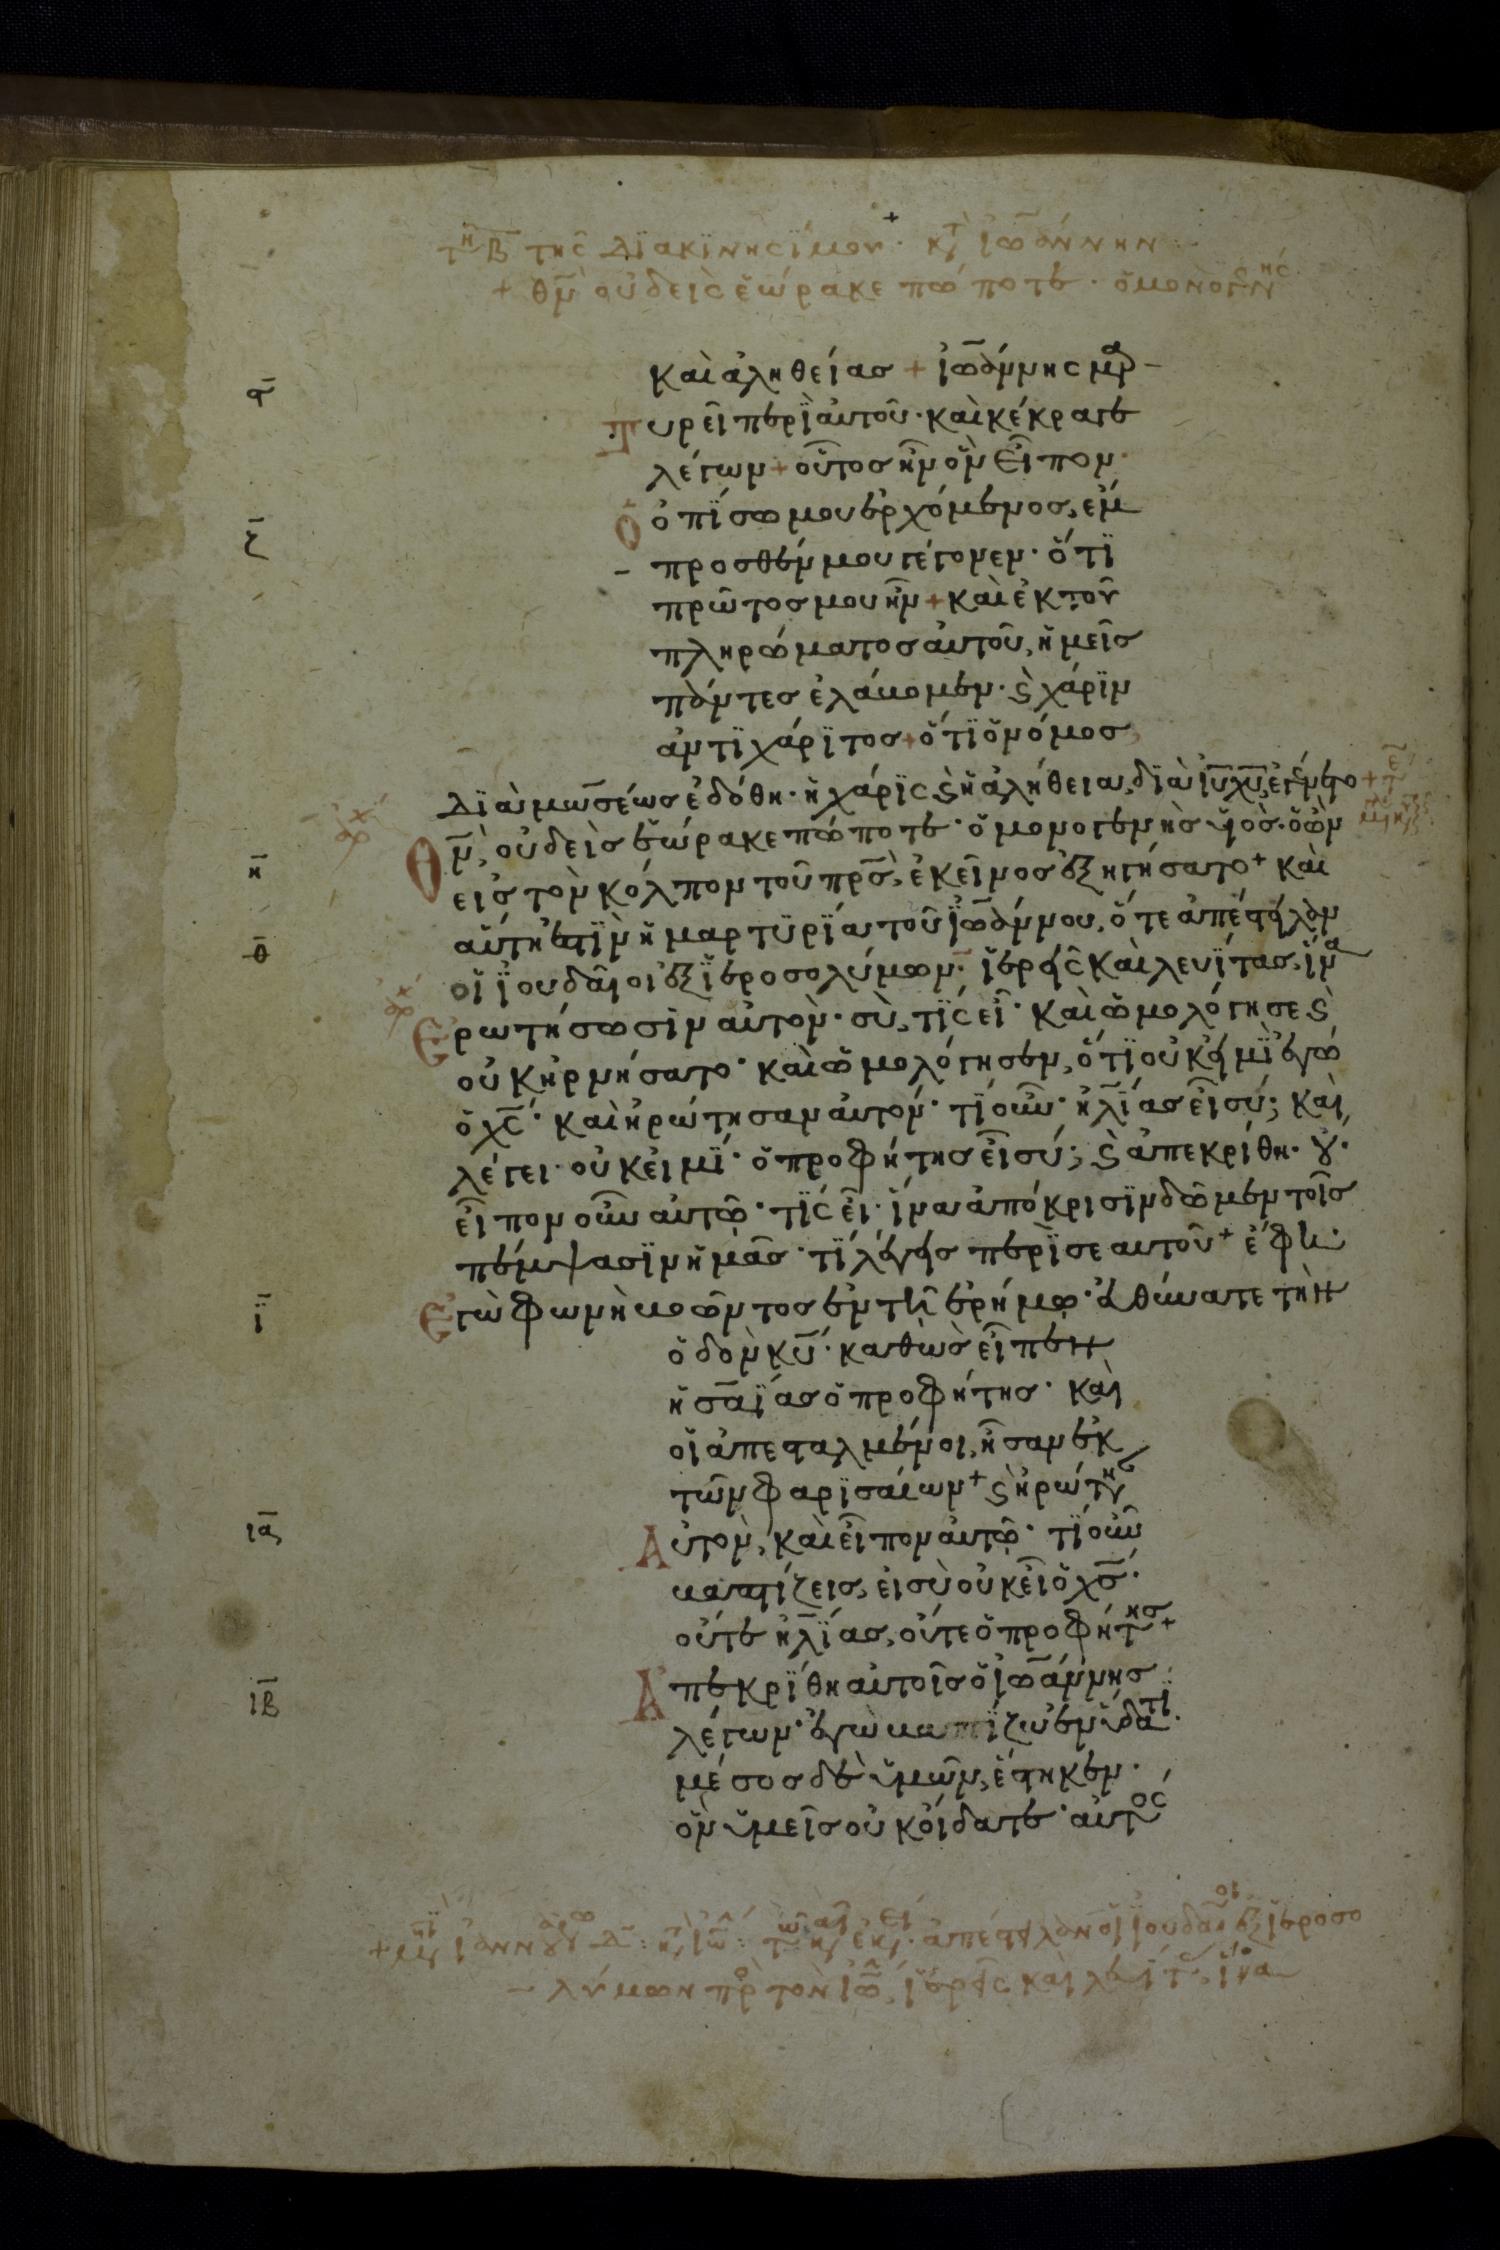 τῆ Β τῆς διακϊνησΐμου · κτ ἰω̅άννην
+ θν̅ οὐδεὶς ἑώρακε πώποτε · ὁ μονογενὴς
καὶ ἀληθείας + ἰω̅άννης μαρ
Τυρεῖ περὶ αὐτοῦ · καὶ κέκραγε
λέγων + οὗτος ἦν ὃν εἶπον ·
Ὁ ὀπΐσω μου ἐρχόμενος, ἔμ
προσθέν μου γέγονεν · ὅτϊ
πρῶτος μου ἦν + καὶ ἐκ τοῦ
πληρώματος αὐτοῦ, ἡμεῖς
πάντες ἐλάβομεν · ϛ χάρϊν
ἀντϊ χάρϊτος + ὅτϊ ὁ νόμος
Δϊὰ μωσέως ἐδόθη · ἡ χάρϊς ϛ ἡ ἀλήθεια, δϊὰ ιυ̅ χυ̅, ἐγένετο +
Θν̅, οὐδεὶς ἑώρακε πώποτε · ὁ μονογενὴς υἱὸς · ὁ ὢν
εἰς τὸν κόλπον τοῦ πρσ̅, ἐκεῖνος ἐξηγήσατο + καὶ
αὕτη ἐστϊν ἡ μαρτυρΐα τοῦ ἰω̅άννου, ὅτε ἀπέστειλαν
οἱ ἰουδαῖοι ἐξ ἱεροσολύμων · ἱερεῖς καὶ λευΐτας, ἵνα
Ερωτήσωσιν αὐτὸν · σὺ, τΐς εἶ · καὶ ὡμολόγησε ϛ
οὐκ ἠρνήσατο · καὶ ὡμολόγησεν, ὅτϊ οὐκ εἰμϊ ἐγὼ
ὁ χς̅ · καὶ ἠρώτησαν αὐτόν · τΐ οὖν · ἠλΐας εἶ σύ; καὶ
λέγει · οὐκ εἰμΐ · ὁ προφήτης εἶ σύ; ϛ ἀπεκρίθη · οὔ ·
εἶπον οὖν αὐτῷ · τΐς εἶ · ἵνα ἀπόκρισϊν δῶμεν τοῖς
πέμψασϊν ἡμᾶς · τΐ λέγεις περὶ σεαυτοῦ + ἔφη ·
Εγὼ φωνὴ βοῶντος ἐν τῆ ἐρήμω · εὐθύνατε τὴν
ὁδὸν κυ̅ · καθὼς εἶπεν
ἡσαΐας ὁ προφήτης · καὶ
οἱ ἀπεσταλμένοι, ἦσαν ἐκ
τῶν φαρϊσαίων + ϛ ἠρώτησ
Αὐτὸν, καὶ εἶπον αὐτῶ · τΐ οὖν
βαπτίζεις, εἰ σὺ οὐκ εἶ ὁ χσ̅ ·
οὔτε ἠλΐας, οὔτε ὁ προφήτης +
Ἀπεκρΐθη αὐτοῖς ὁ ἰω̅άννης
λέγων · ἐγὼ βαπτΐζω ἐν ὕδατϊ ·
μέσος δὲ ὑμῶν, ἕστηκεν ·
ὃν ὑμεῖς οὐκ οἴδατε · αὐτός
ζ̅
η̅
θ̅
ϊ̅
ια̅
ιβ̅
ἀπέστειλαν οἱ ἰουδαῖοι ἐξ ἱεροσο
λύμων πρ τὸν ἰω̅, ἱερεῖς καὶ λευΐτ, ἵνα